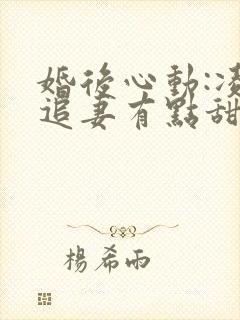 婚後心動:凌
追妻有點甜
楊希雨